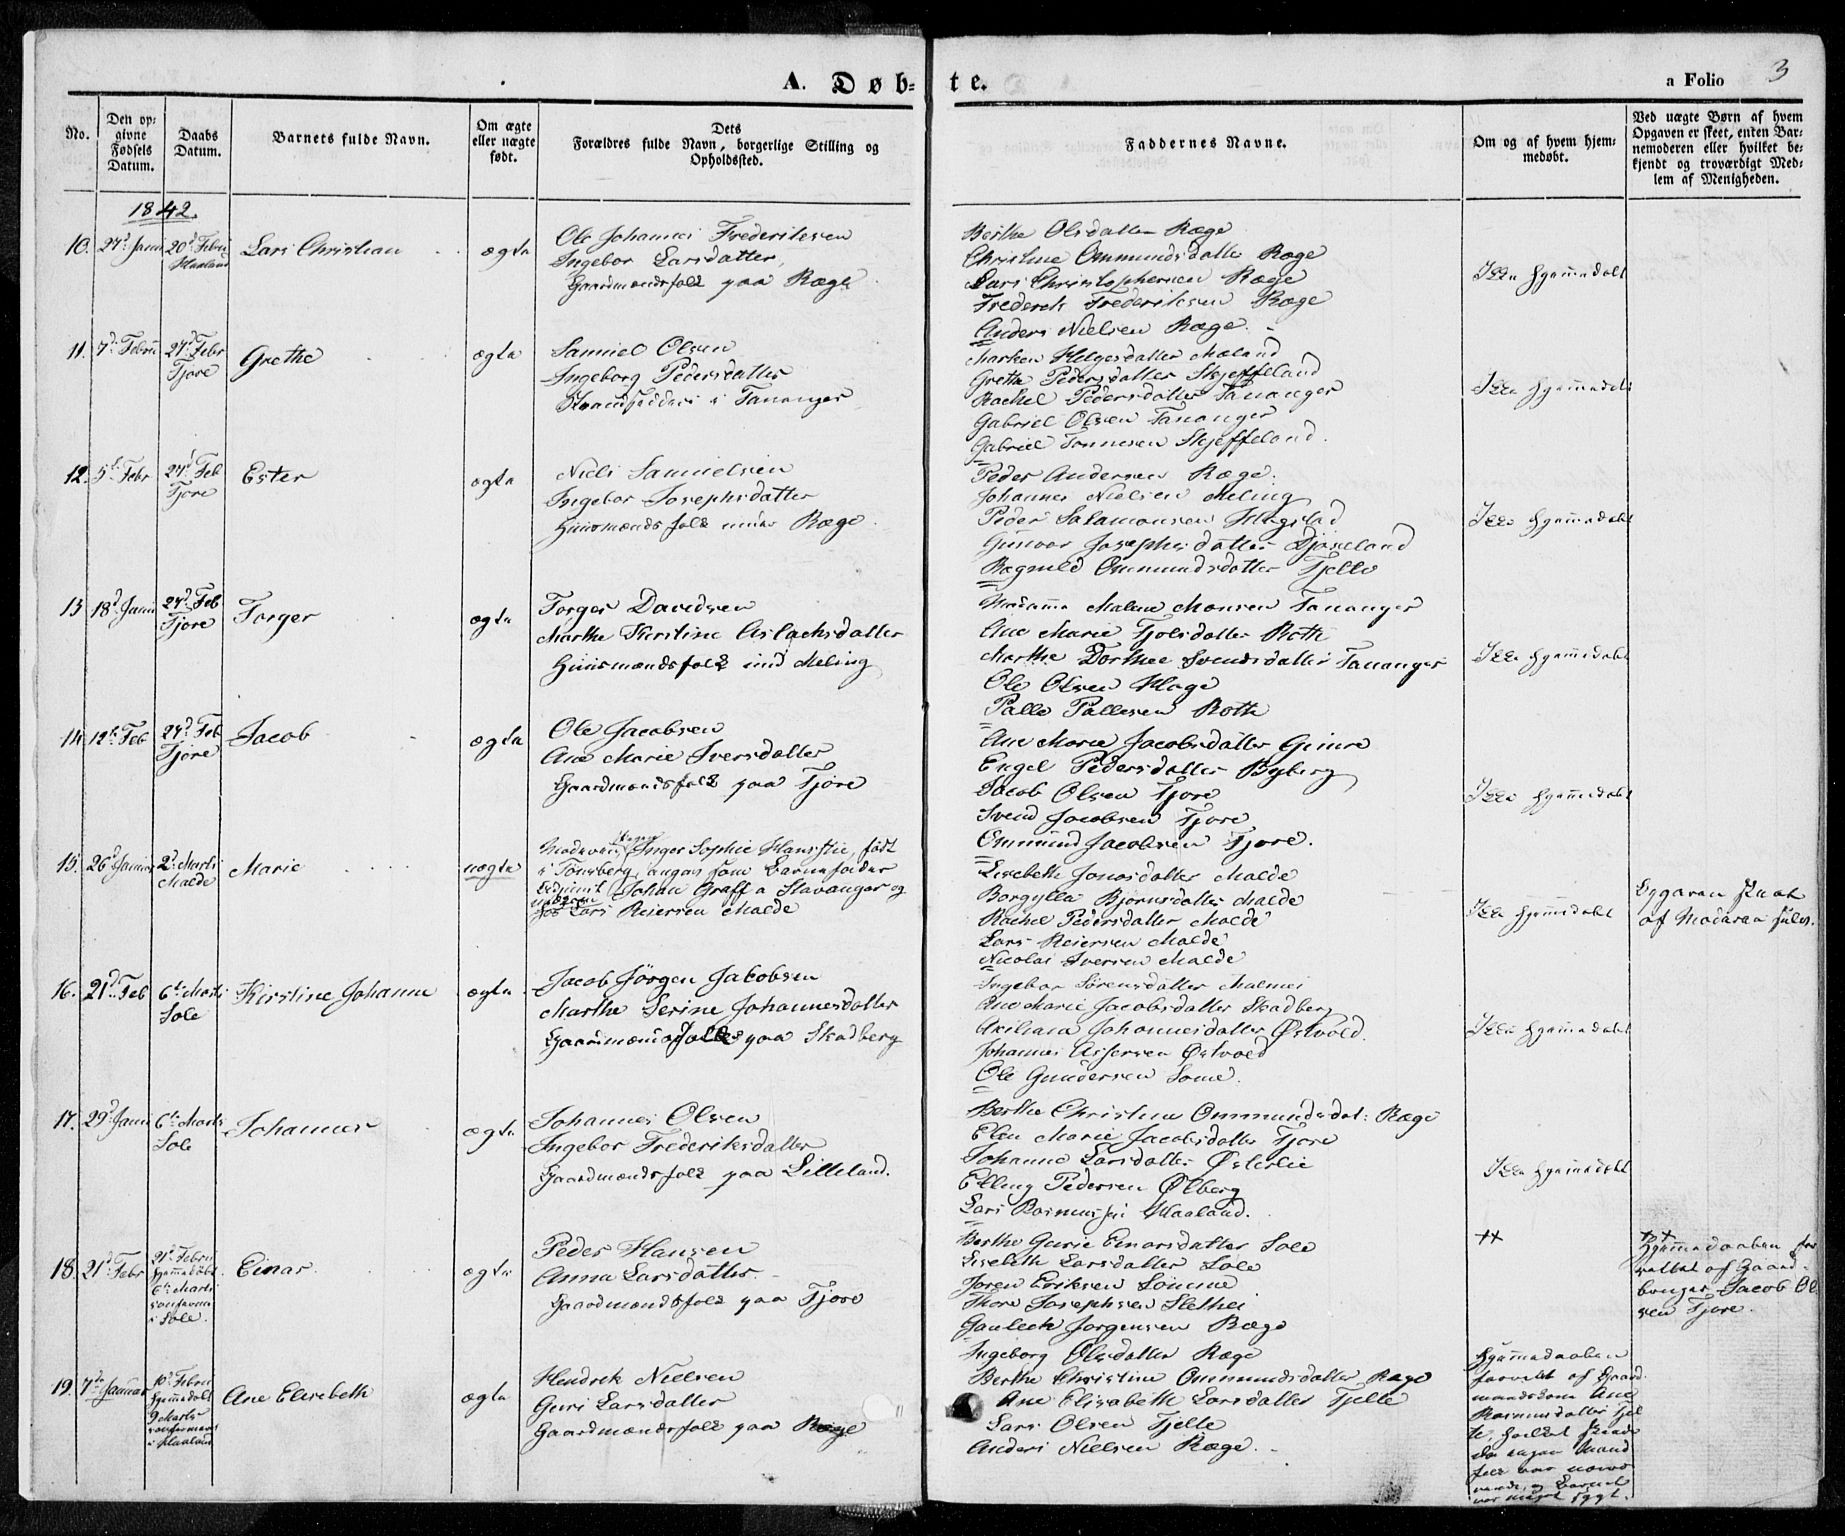 A. Døb-
te.
a Folio 3
No.
Den op-
givne
Fødsels
Datum.
Daabs
Datum.
Barnets fulde Navn.
Om ægte
eller uægte
født.
Dets
Forældres fulde Navn, borgerlige Stilling og
Opholdssted.
Faddernes Navne.
Om og af hvem hjem-
medøbt.
Ved uægte Børn af hvem
Opgaven er skeet, enten Bar-
nemoderen eller hvilket be-
kjendt og troværdigt Med-
lem af Menigheden.
1842.
10. 27d Janu
20d Febru
Haaland
Lars Christian
ægte
Ole Johannes Frederiksen
Ingebor Larsdatter,
Gaardmandsfolk paa Ræge
Berthe Olsdatter Ræge
Christine Ommundsdatter Ræge
Lars Christophersen Ræge
Frederek Frederiksen Ræge
Anders Nielsen Ræge.
Ikke hjemmedøbt
11. 7d Febru
27d Febr
Tjore
Grethe
ægte
Samuel Olsen
Ingeborg Pedersdatter
Strandsiddere i Tananger
Marken Helgesdatter Mæland
Grethe Pedersdatter Skjeffeland
Rachel Pedersdatter Tananger
Gabriel Olsen Tananger
Gabriel Tonnesen Skjeffeland.
Ikke hjemmedøbt
12. 5t Febr
27d Feb
Tjore
Ester
ægte
Niels Samuelsen
Ingebor Josephsdatter
Huusmandsfolk under Ræge.
Peder Andersen Ræge.
Johannes Nielsen Meling
Peder Salamonsen Hagstad
Gunvor Josephsdatter Djoseland
Ragnild Ommundsdatter Tjelte
Ikke hjemmedøbt
13 18d Janu
27d Feb
Tjore
Torger
ægte
Torger Davidsen
Marthe Kirstine Aslachsdatter
Huusmandsfolk und Meling
Madamme Malene Monsen Tananger
Ane Marie Tjolsdatter Roth
Marthe Dorthee Svendsdatter Tananger
Ole Olsen Hage
Palle Pallesen Roth
Ikke hjemmedøbt
14 12t Feb
27d Feb
Tjore
Jacob
ægte
Ole Jacobsen
Ane Marie Iversdatter
Gaardmandsfolk paa Tjore
Ane Marie Jacobsdatter Gimre
Engel Pedersdatter Byberg
Jacob Olsen Tjore
Svend Jacobsen Tjore
Ommund Jacobsen Tjore.
Ikke hjemmedøbt
15. 26d Januar
2d Marti
Malde
Marie
uægte
Inger Sophie født
i Tönsberg, angav som Barnefader
Johan Graff a Stavanger og
Lars Reiersen Malde
Lisebeth Jonasdatter Malde
Borgylla Bjørnsdatter Malde
Rachel Pedersdatter Malde
Lars Reiersen Malde
Nicolai Iversen Malde
Ikke hjemmedøbt
Opgaven skeet
af Moderen selv.
16. 21d Feb
6t Marti
Sole
Kirstine Johanne
ægte
Jacob Jörgen Jacobsen
Marthe Serine Johannesdatter
Gaardmandsfolk paa Skadberg
Ingebor Sørensdatter Malmei
Ane Marie Jacobsdatter Skadberg
Axeliana Johannesdatter Østvold.
Johannes Assersen Østvold
Ole Gundersen Some.
Ikke hjemmedøbt
17. 29d Janu
6t Marts
Sole
Johannes
ægte
Johannes Olsen
Ingebor Frederiksdatter
Gaardmandsfolk paa Lilleland.
Berthe Christine Ommundsdat: Ræge
Elen Marie Jacobsdatter Tjore
Johanne Larsdatter Østerlie
Elling Pedersen Ølberg
Lars Rasmussen Haaland.
Ikke hjemmedøbt
18. 21d Febr
21d Febru
hjemmedøbt
6t Marti
confirm
i Sole.
Einar
ægte
Peder Hansen
Anna Larsdatter
Gaardmandsfolk paa Tjore
Berthe Gurie Einarsdatter Sole
Lisebeth Larsdatter Sole
Joren Eriksen Sömme
Thore Josephsen Slethei
Gauleck Jorgensen Ræge
++
+++
Hjemmedaaben for
rettet af Gaard-
bruger Jacob Ol
sen Tjore.
19. 7de Januar
10d Febru
hjemmedøbt
9 Marts
i Haaland
Ane Elisebeth
ægte
Hendrek Nielsen
Guri Larsdatter
Gaardmandsfolk paa Ræge
Ingeborg Olsdatter Ræge
Berthe Christine Ommundsdatter Ræge
Ane Elisabeth Larsdatter Tjelte
Lars Olsen Tjelte
Anders Nielsen Ræge.
Hjemmedaaben
forrettet af Gaard
mandskone Ane
Rasmusdatter Tjel
te, hvilket skeede
da ingen Mand
folk var nærvæ
rende, og Barnet
var meget sygt.